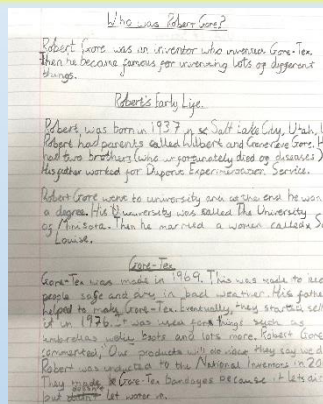 Who was Robert Gore?
Robert Gore was an inventor who invented Gore-Tex.
Then he became famous for inventing lots of different
things.
Robert's Early Life
Robert, was born in 1937 in Salt Lake City, Utah,
Robert had parents called Wilbert and Genevieve Gore. H
had two brothers (who unfortunately died of diseases)
His father worked for Duponte Experimentation Service.
Robert Gore went to university and at the end he won
a degree. His university was called The University
of Minisora. Then he married a women called S
Louise.
Gore-Tex
Gore-Tex was made in 1969. This was made to kee
people safe and dry in bad weather. His father
helped to make Gore-Tex. Eventually, they started sell
it in 1976. It was used for things such as
umbrellas boots and lots more. Robert Gore
commented, Our products will do what they say we d
Robert was inducted to the National Inventors in 20
They made Gore-Tex bandages because it lets air
but doesn't let water in.